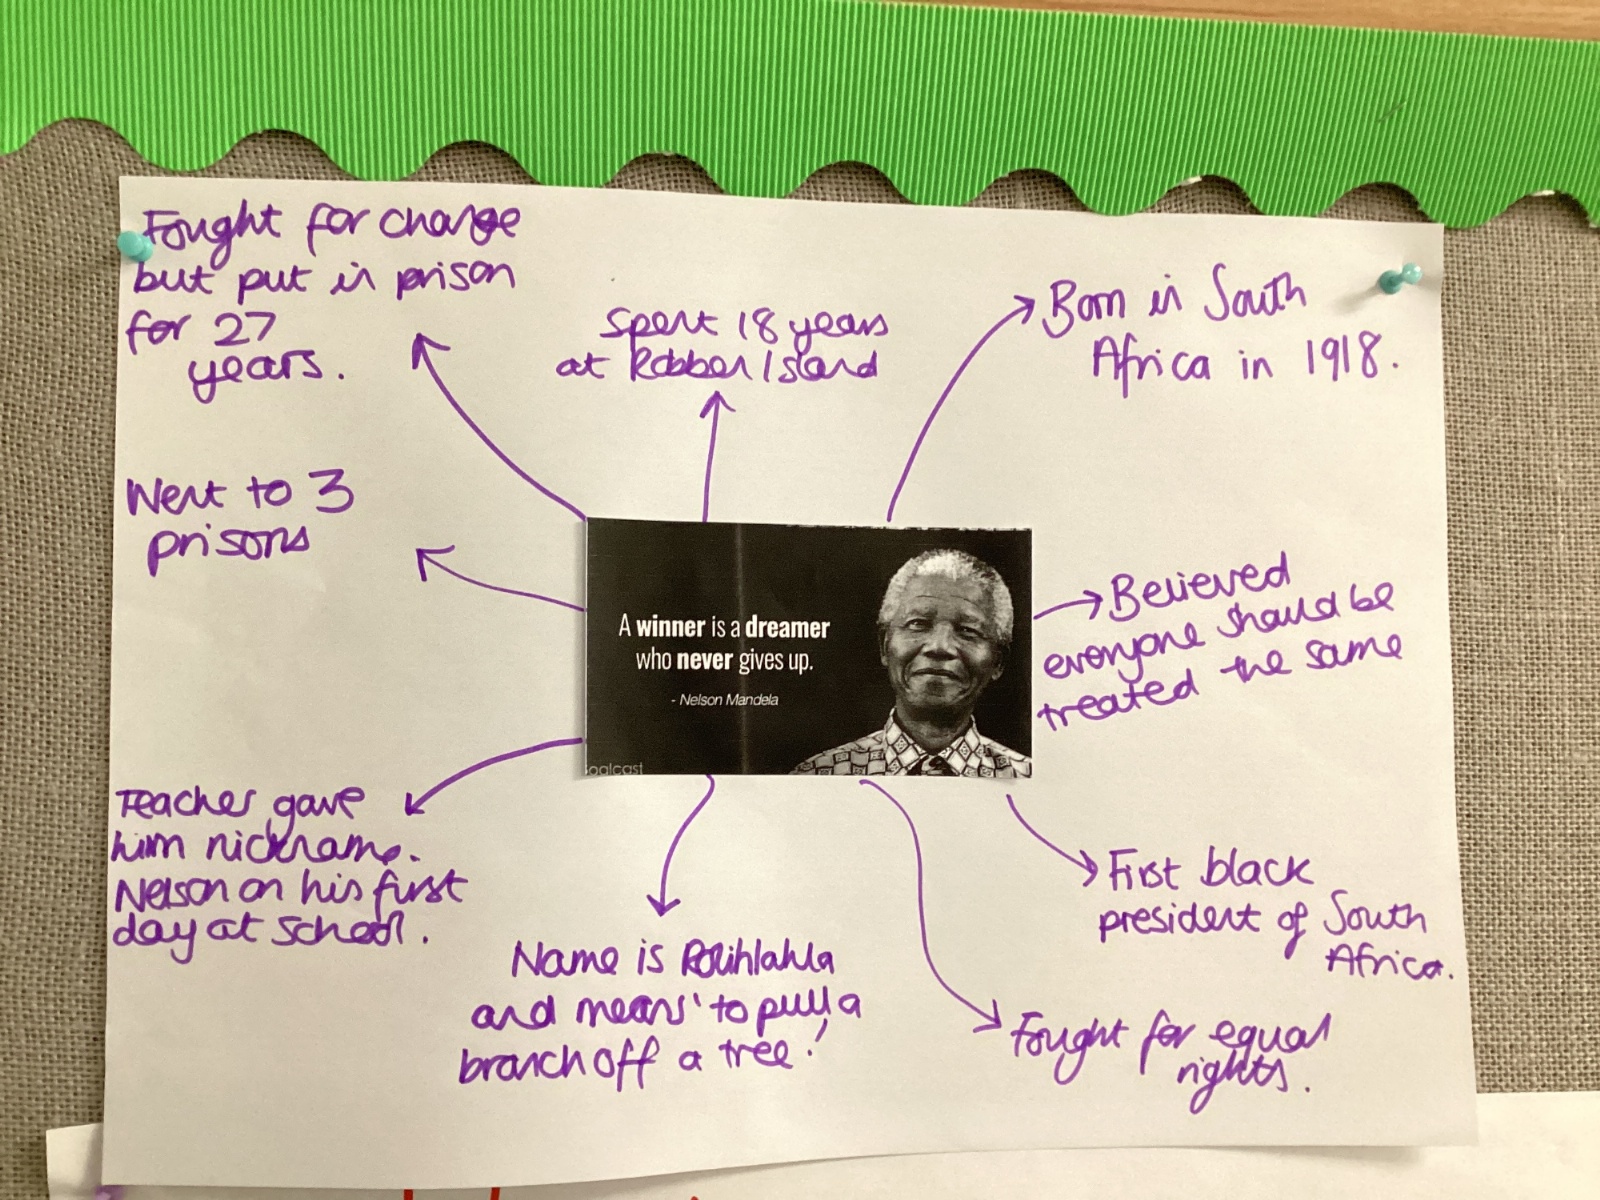 Fought for change
but put in prison
for 27
years.
Spent 18 years
at Robben Island
Born in South
Africa in 1918.
Went to 3
prisons
A winner is a dreamer
who never gives up.
- Nelson Mandela
oalcast
Believed
everyone should be
treated the same
Teacher gave
him nickname.
Nelson on his first
day at school.
Name is Rolihlahla
and means 'to pull a
branch off a tree.'
First black
president of South
Africa.
Fought for equal
rights.